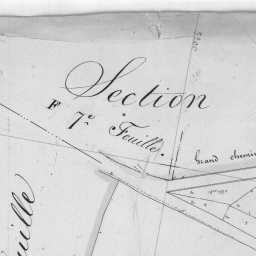 Section
F 7e Feuille.
Grand chemin
uille